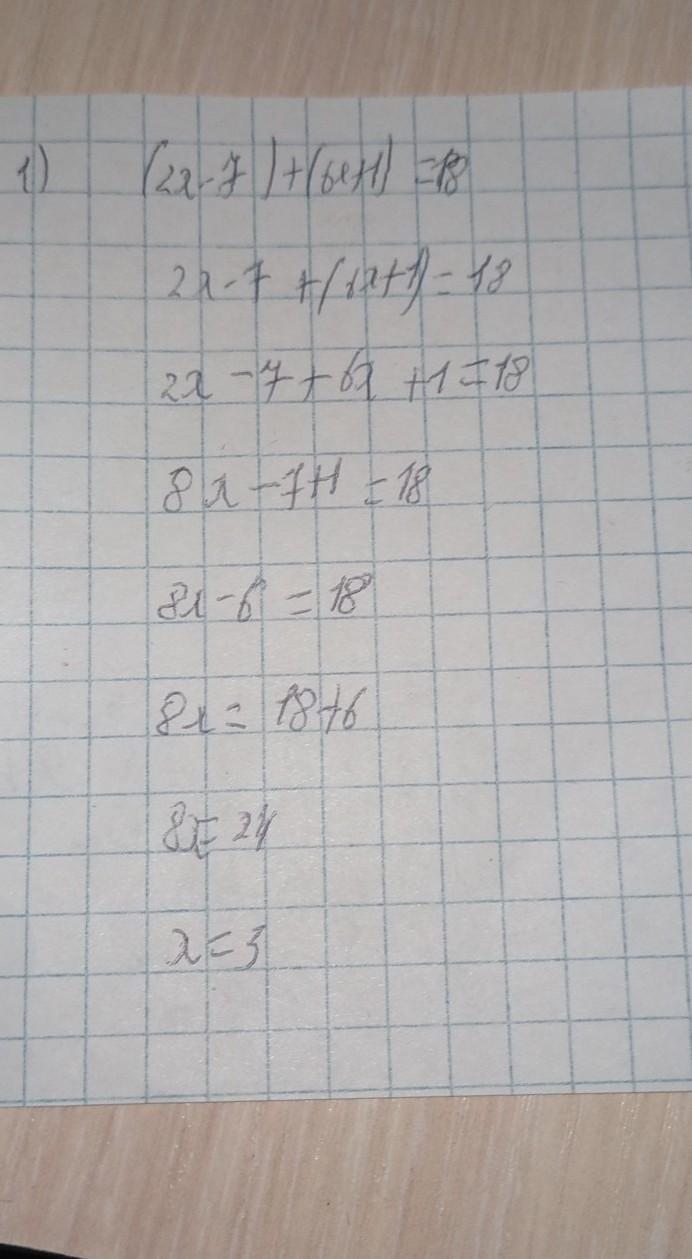 1) (2x-7)+(6x+1)=18
2x-7+(6x+1)=18
2x-7+6x+1=18
8x-7+1=18
8x-6=18
8x=18+6
8x=24
x=3